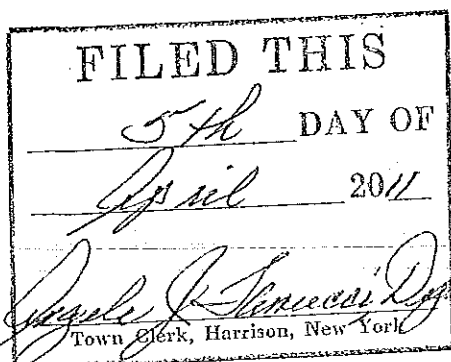 FILED THIS
5th DAY OF
April 2011
Angela J.
Town Clerk, Harrison, New York